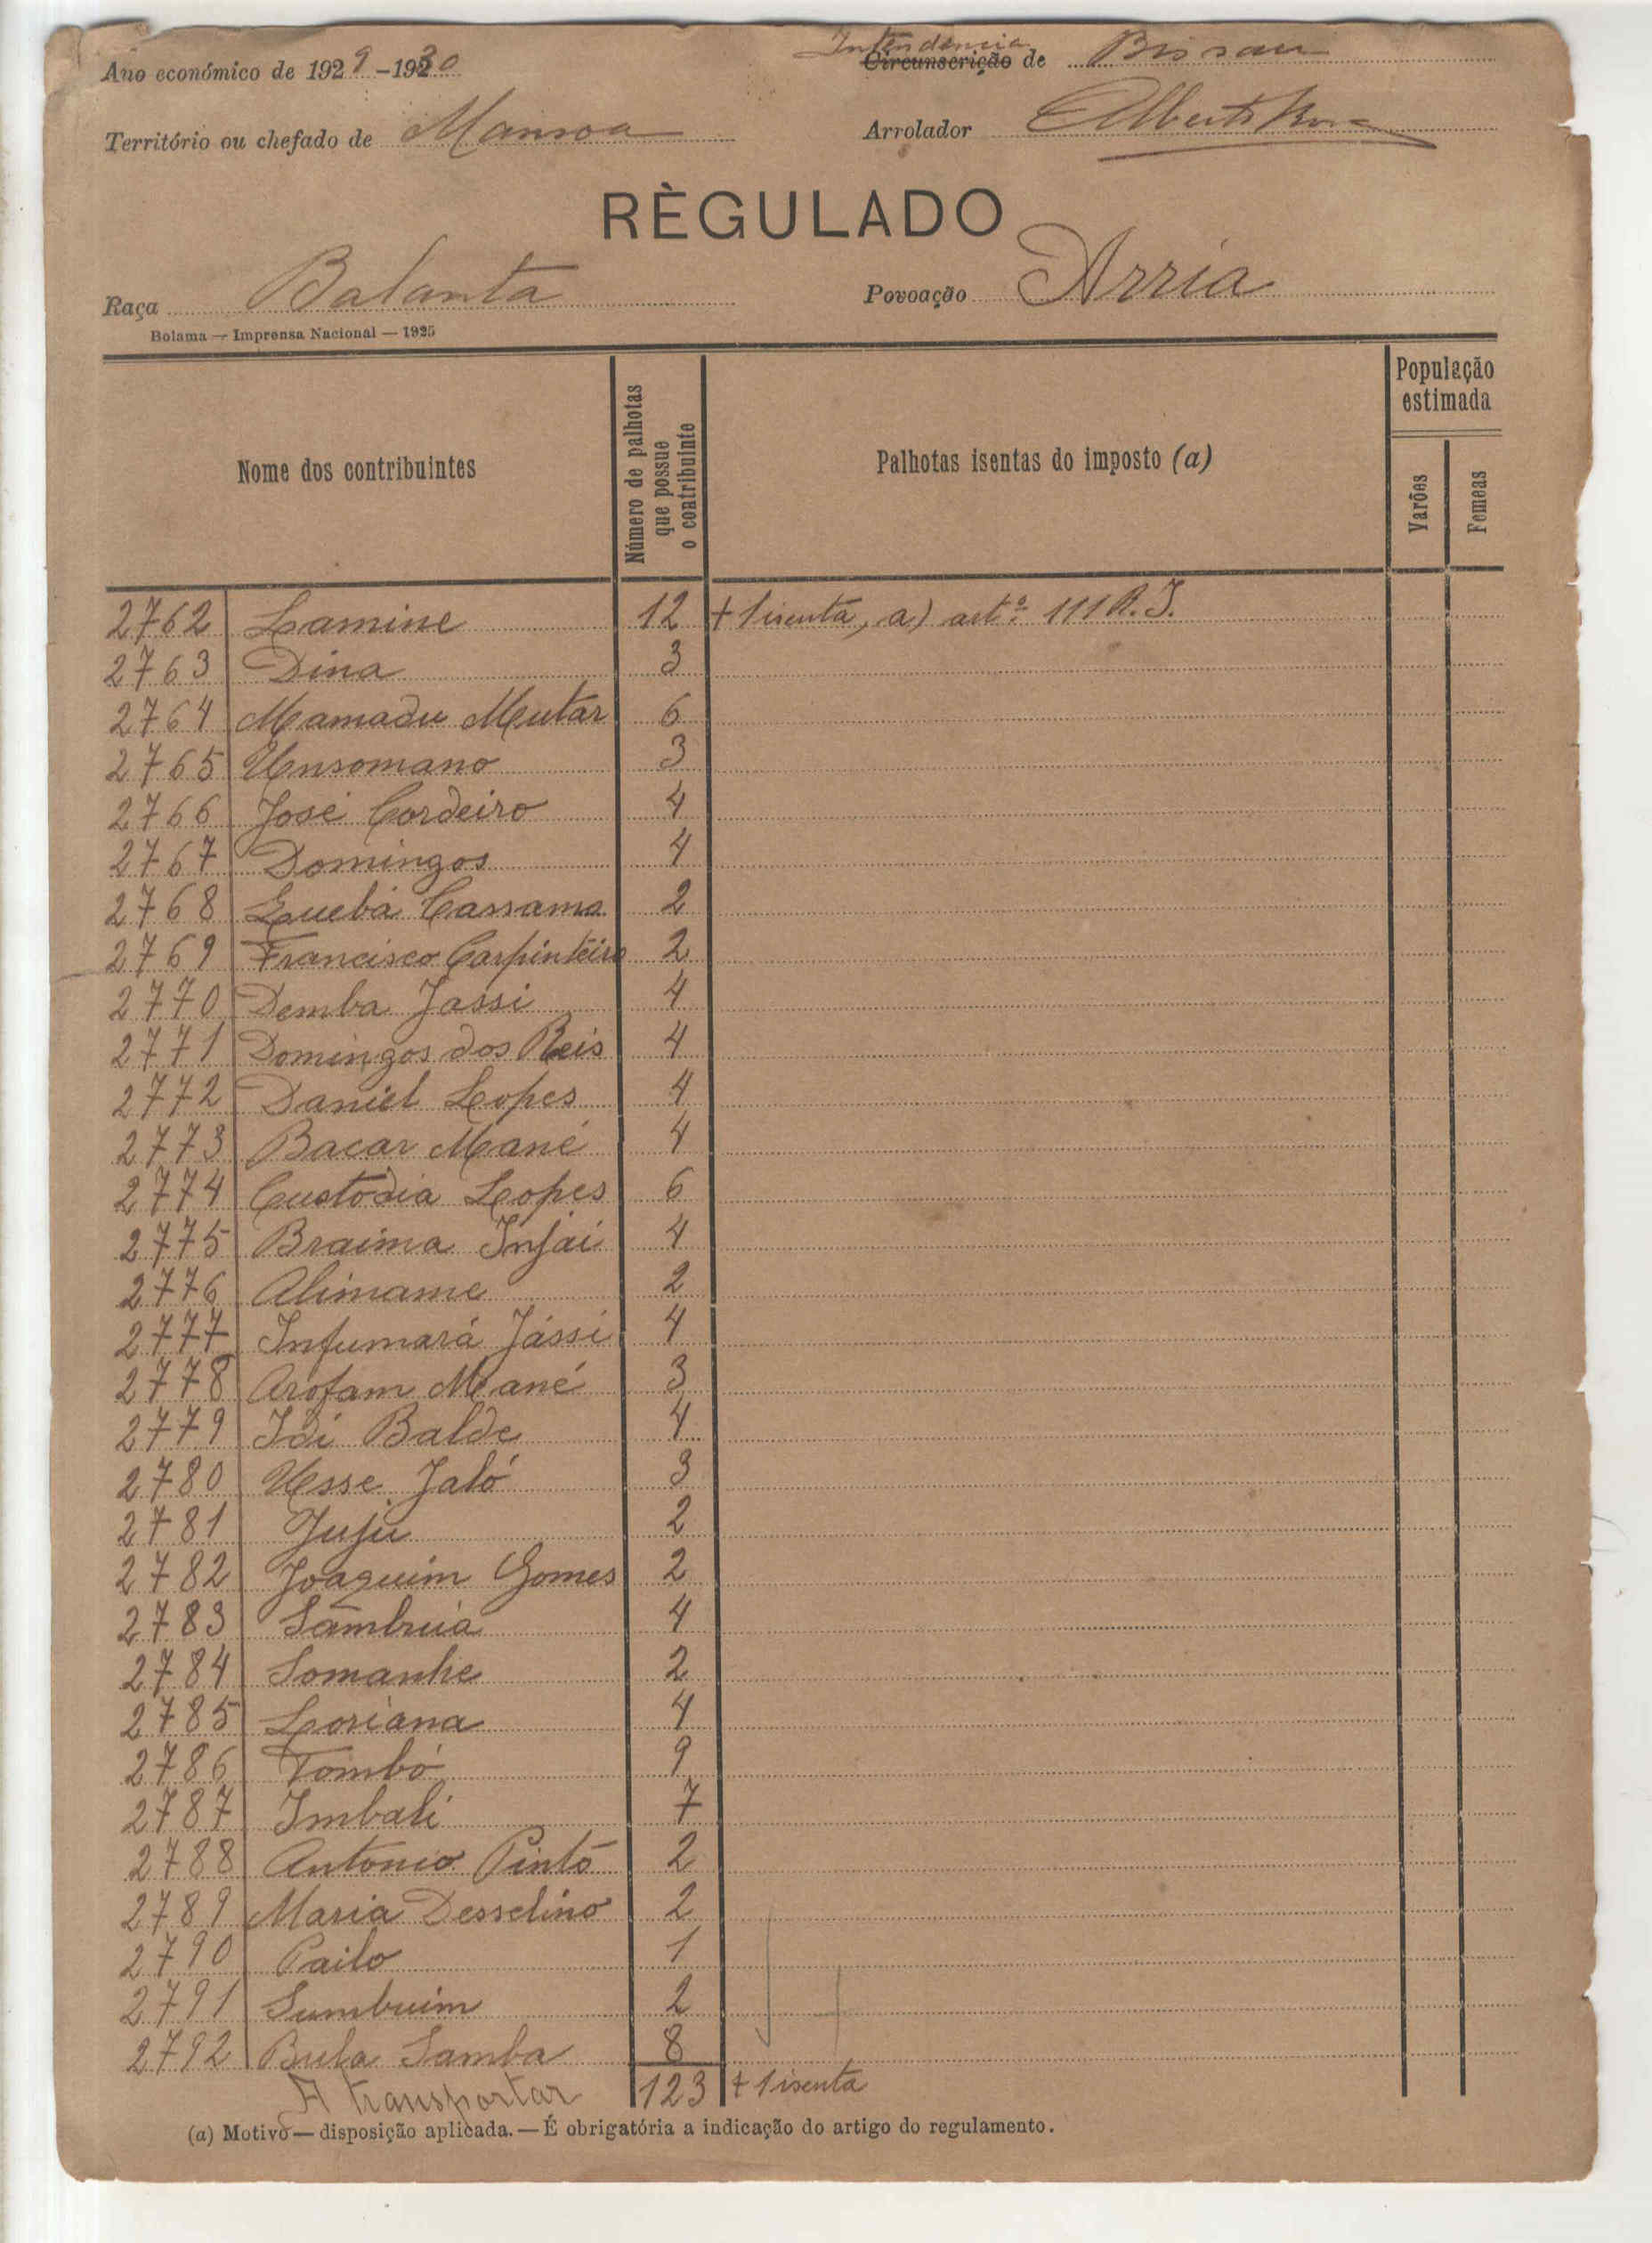 Ano económico de 1929-1930
Intendencia
Circunscrição de Bissau
Território ou chefado de Mansoa
Arrolador Alberto
RÈGULADO
Raça Balanta
Povoação Arria
Bolama — Imprensa Nacional — 1925
Nome dos contribuintes
Número de palhotas que possue o contribuinte
Palhotas isentas do imposto (a)
População estimada
Varões
Femeas
2762 Lamine 12 + 1 isenta, a) artº 111 R. I.
2763 Dina 3
2764 Mamadu Mutar 6
2765 Unsomano 3
2766 José Cordeiro 4
2767 Domingos 4
2768 Quebá Cassama 2
2769 Francisco Carpinteiro 2
2770 Demba Jassi 4
2771 Domingos dos Reis 4
2772 Daniel Lopes 4
2773 Bacar Mané 4
2774 Custodia Lopes 6
2775 Braima Injai 4
2776 Alimame 2
2777 Infumará Jássi 4
2778 Arofam Mané 3
2779 Idi Balde 4
2780 Usse Jaló 3
2781 Juju 2
2782 Joaquim Gomes 2
2783 Sambuia 4
2784 Somanhe 2
2785 Loriana 4
2786 Tombó 9
2787 Imbali 7
2788 Antonio Pinto 2
2789 Maria Desselino 2
2790 Pailo 1
2791 Sumbuim 2
2792 Bula Samba 8
A transportar 123 + 1 isenta
(a) Motivo — disposição aplicada. — É obrigatória a indicação do artigo do regulamento.